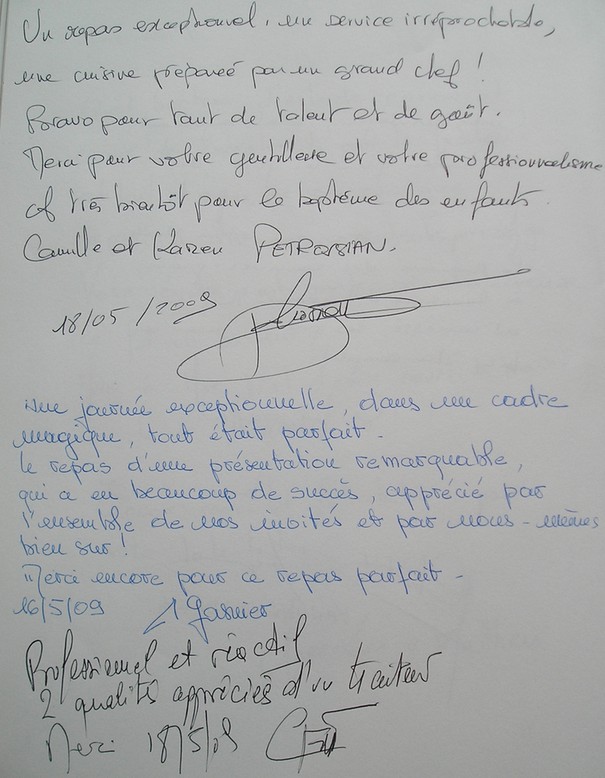 Un repas exceptionnel, un service irréprochable,
une cuisine préparée par un grand chef !
Bravo pour tant de talent et de goût.
Merci pour votre gentillesse et votre professionnalisme
et très bientôt pour le baptême des enfants.
Camille et Karen PETROSSIAN.
18/05/2009
Une journée exceptionnelle, dans un cadre
magique, tout était parfait.
Le repas d'une présentation remarquable,
qui a eu beaucoup de succès, apprécié par
l'ensemble de nos invités et par nous-mêmes
bien sur !
Merci encore pour ce repas parfait -
16/5/09 Garnier
Professionnel et réactif
2 qualités appréciées d'un traiteur
Merci 18/5/09